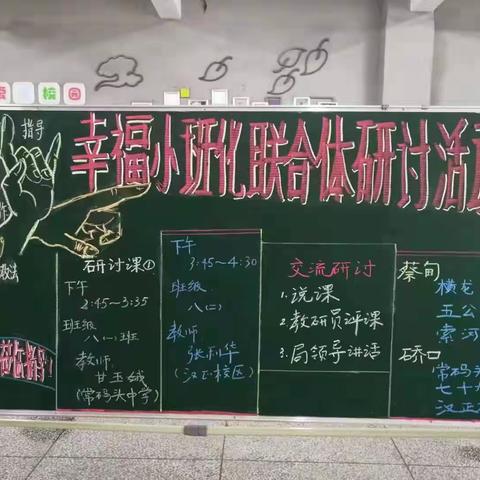 校园
指导
幸福小班化联合体研讨活
研讨课①
下午
2:45~3:35
班级
八(一)班
教师
甘玉
(常码头中学)
下午
3:45~4:30
班级
八(二)
教师
张利华
(汉正校区)
交流研讨
1.说课
2.教研员评课
3.局领导讲话
蔡甸
横龙
五公
索河
硚口
常码头
七十
汉正